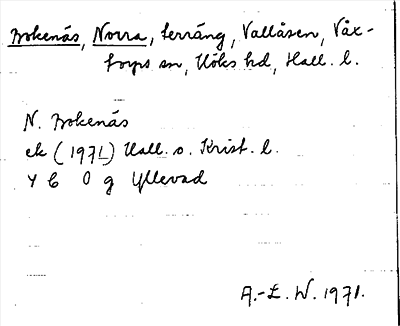 Bokenäs, Norra, terräng, Vallåsen, Våx-
torps sn, Höks hd, Hall. l.
N. Bokenäs
ek (1971) Hall. o. Krist. l.
4 C 0 g Yllevad
A.-L. W. 1971.